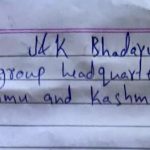 J&K Bhadarw
group headquarte
mu and Kashm